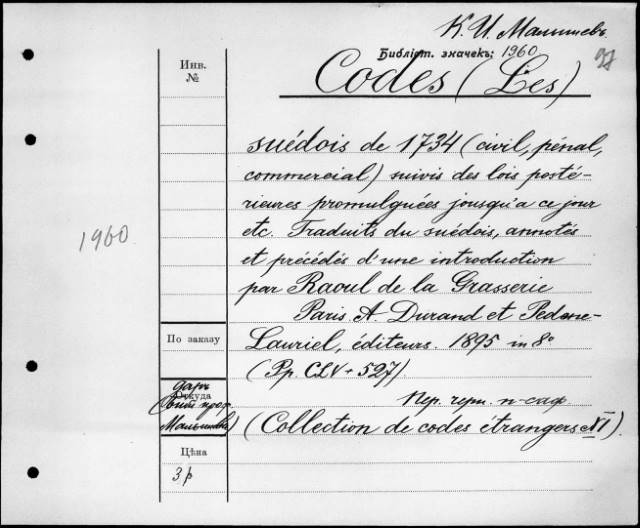 К. И. Малышевъ
Библіот. значекъ: 1960
97
Codes (Les)
Инв.
№
suédois de 1734 (civil, pénal,
commercial) suivis des lois posté-
rieures promulguées jousqu'a ce jour
etc. Traduits du suédois, annotés
1960
et précédés d'une introduction
par Raoul de la Grasserie
Paris. A. Durand et Pedone-
По заказу
Lauriel, éditeurs. 1895 in 8°
(Pp. CLV + 527).
даръ
Откуда
Пер. черн. п-саф
Малышева) (Collection de codes étrangers XI).
Цѣна
3 р